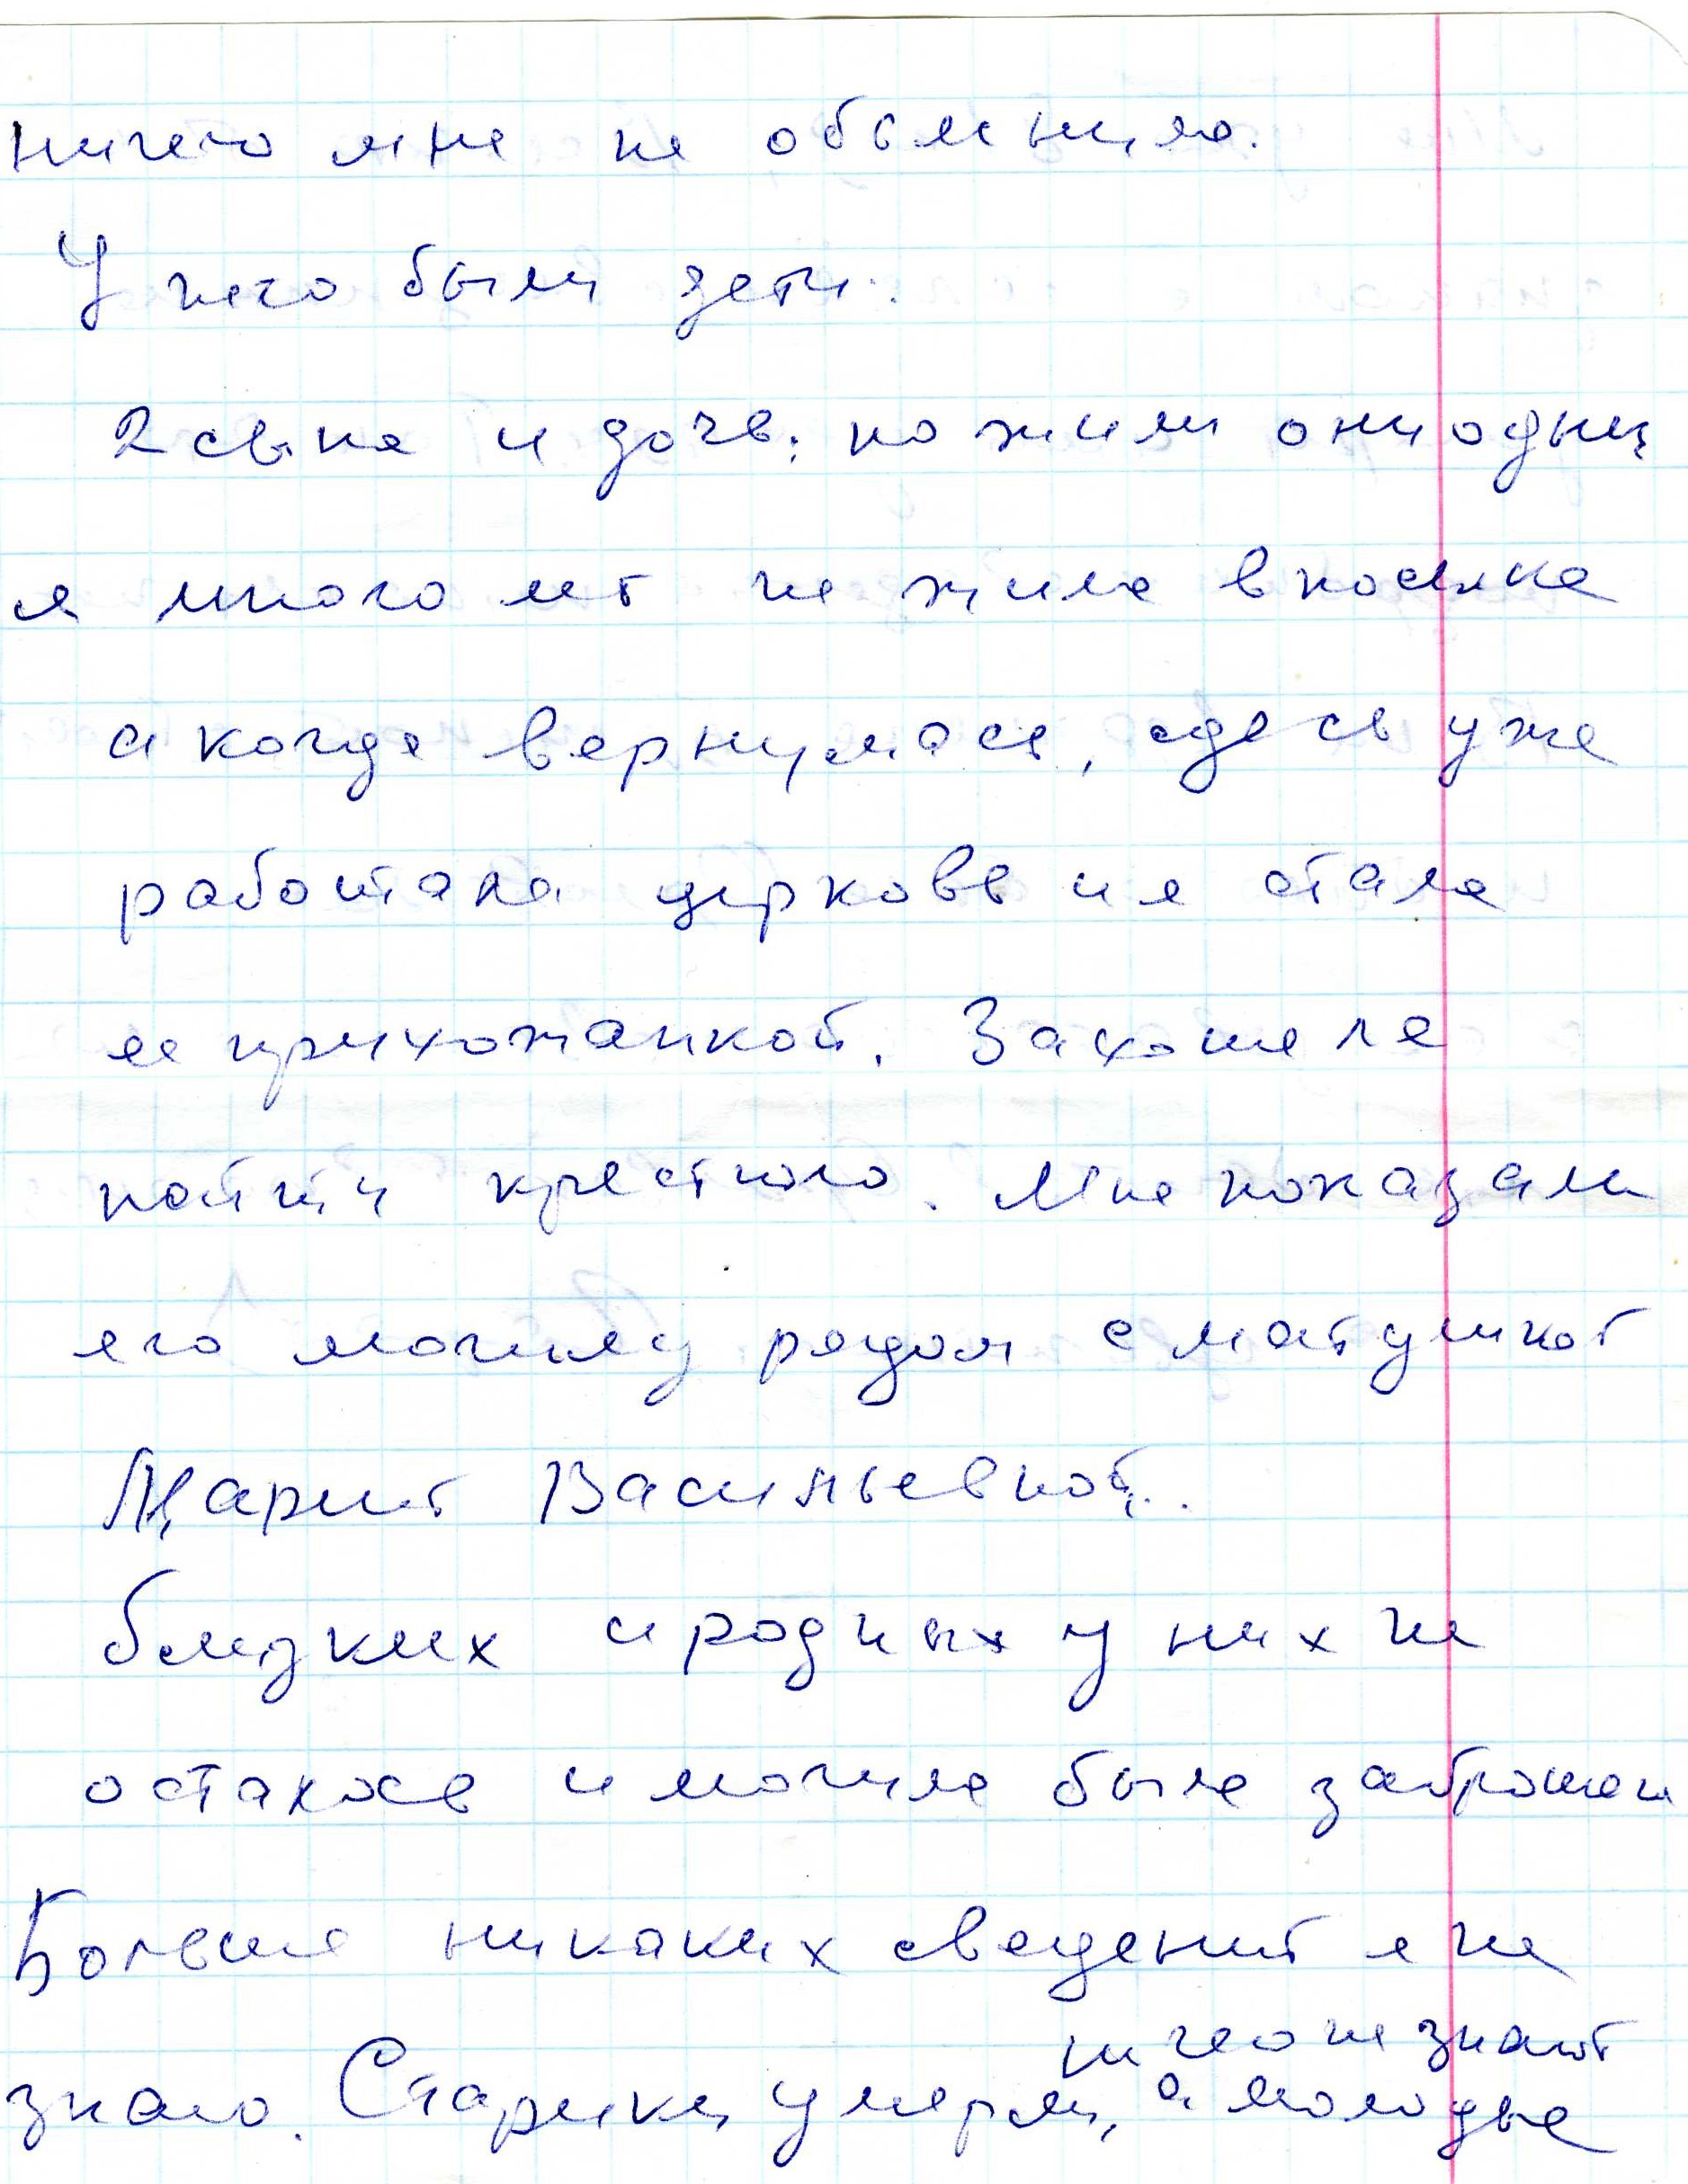 ничего мне не объяснила.
У него были дети.
2 сына и дочь, но жили они одни,
я много лет не жила в поселке
а когда вернулась, здесь уже
работала церковь и я стала
ее прихожанкой. Захотела
найти крестного. Мне показали
его могилу рядом с матушкой
Марией Васильевной.
близких и родных у них не
осталось и могила была заброшен
Больше никаких сведений я не
знаю. Старики умерли, а молодые
ничего не знают